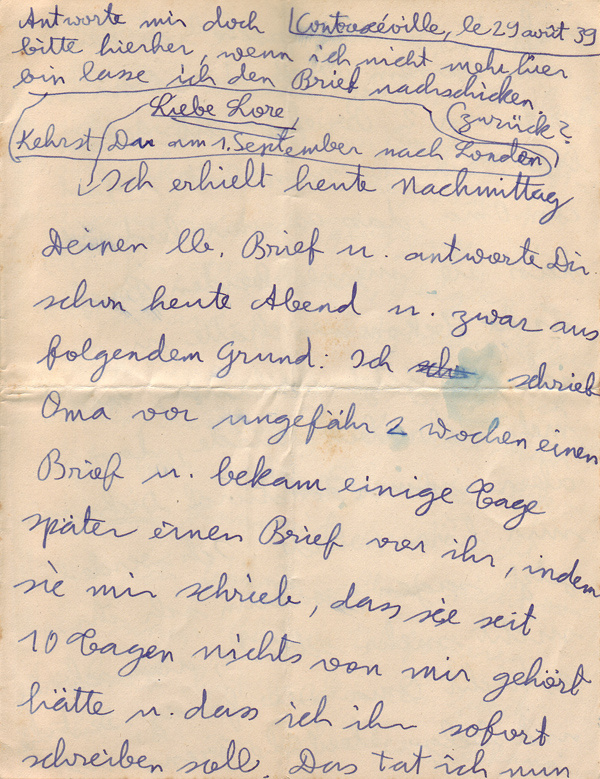 Contrexéville, le 29 août 39
Antworte mir doch
bitte hierher, wenn ich nicht mehr hier
bin lasse ich den Brief nachschicken.
Liebe Lore,
Kehrst Du am 1. September nach London
(zurück?
Ich erhielt heute Nachmittag
Deinen lb. Brief u. antworte Dir
schon heute Abend u. zwar aus
folgendem Grund: Ich schrieb
Oma vor ungefähr 2 Wochen einen
Brief u. bekam einige Tage
später einen Brief von ihr, indem
sie mir schrieb, dass sie seit
10 Tagen nichts von mir gehört
hätte u. dass ich ihr sofort
schreiben soll. Das tat ich nun